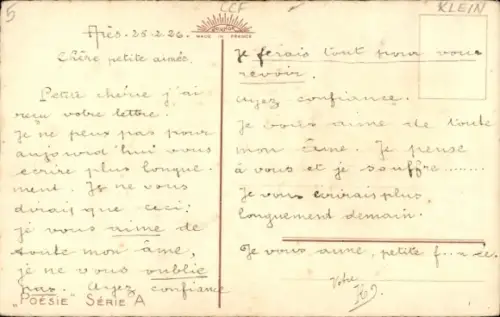 5
CCF
KLEIN
MADE IN FRANCE
Arès. 25.2.26.
Chère petite aimée.
Petite chérie j'ai
reçu votre lettre.
Je ne peux pas pour
aujourd'hui vous
écrire plus longue
ment. Je ne vous
dirais que ceci:
je vous aime de
toute mon âme,
je ne vous oublie
pas. Ayez confiance
"POÉSIE" SÉRIE A
Je ferais tout pour vous
revoir.
Ayez confiance.
Je vous aime de toute
mon âme. Je pense
à vous et je souffre........
Je vous écrirais plus
longuement demain.
Je vous aime, petite f...
Votre